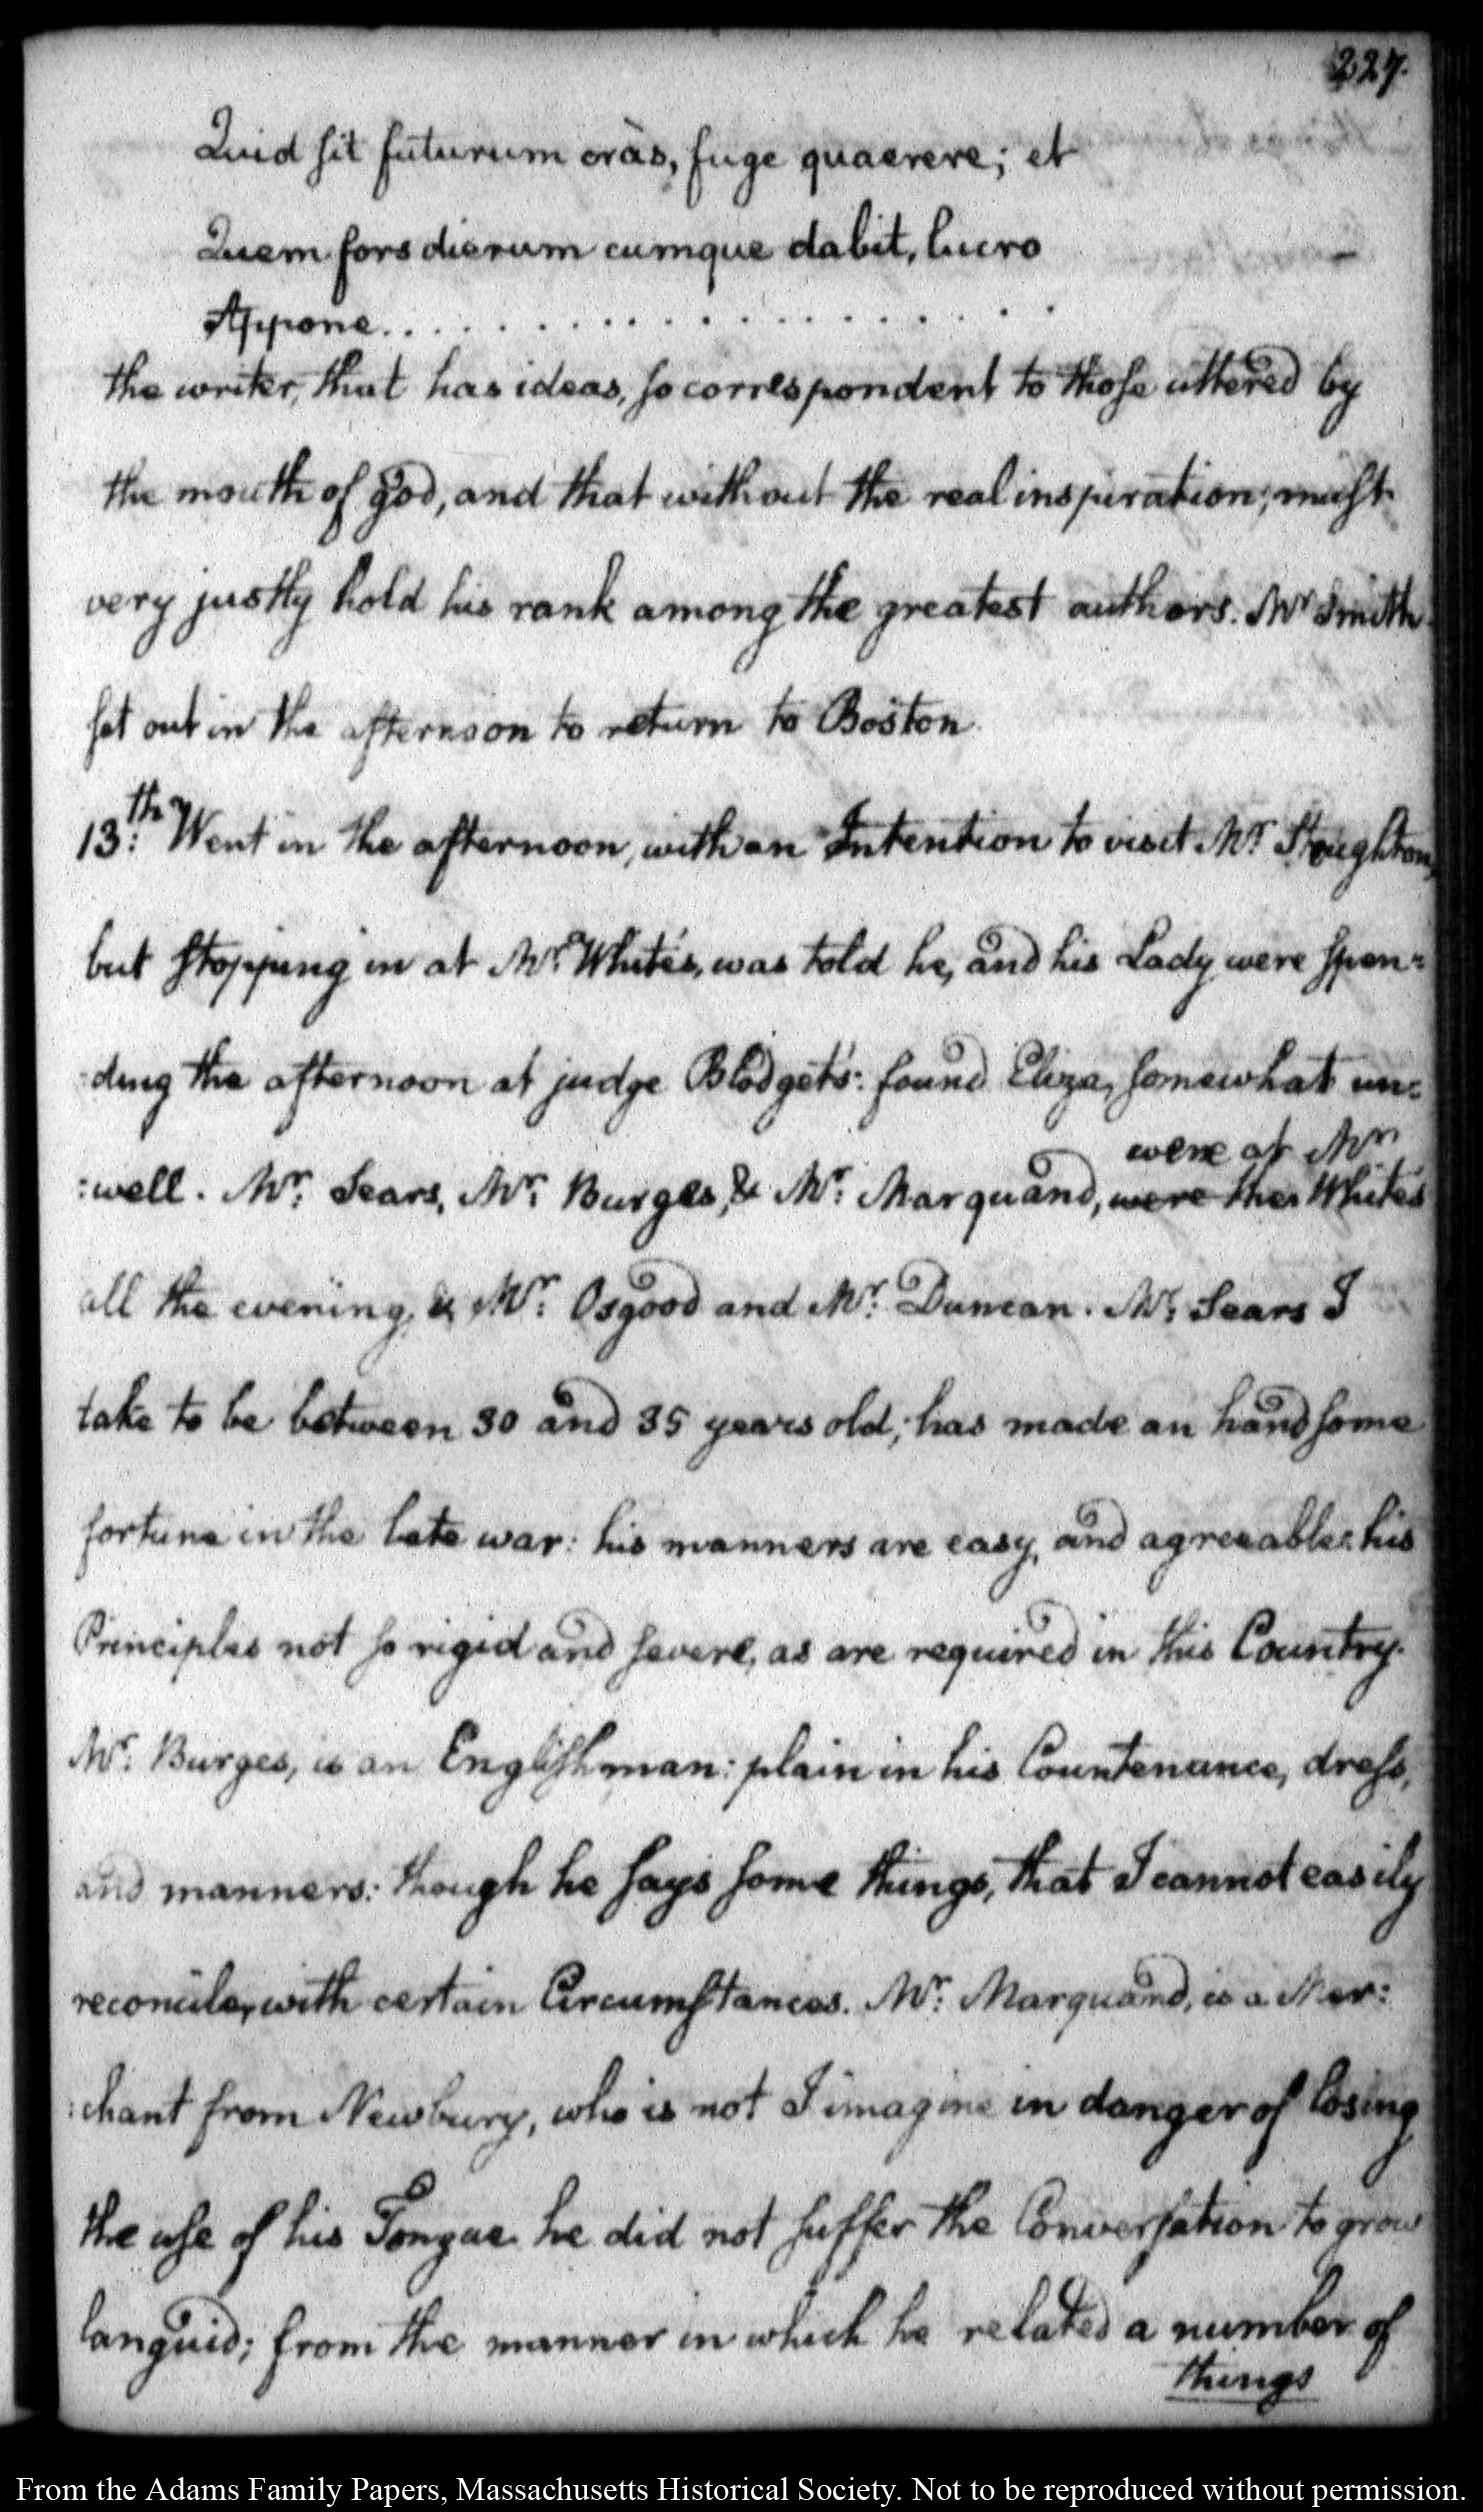 227.
Quid sit futurum cràs, fuge quaerere; et
Quem fors dierum cumque dabit, lucro
Appone. . . . . . . . . . . . . . . . . . . .
the writer, that has ideas, so correspondent to those uttered by
the mouth of god, and that without the real inspiration; must
very justly hold his rank among the greatest authors. Mr Smith
set out in the afternoon to return to Boston.
13:th Went in the afternoon, with an Intention to visit Mr Stoughton,
but stopping in at Mr: White's, was told he, and his Lady were spen=
:ding the afternoon at judge Blodget's: found Eliza, somewhat un=
were at Mr
:well. Mr: Sears, Mr: Burges, & Mr: Marquand, were ther White's
all the evening, & Mr: Osgood and Mr: Duncan. Mr: Sears I
take to be between 30 and 35 years old; has made an handsome
fortune in the late war: his manners are easy, and agreeable: his
Principles not so rigid and severe, as are required in this Country.
Mr: Burges, is an Englishman: plain in his Countenance, dress,
and manners: though he says some things, that I cannot easily
reconcile, with certain Circumstances. Mr: Marquand, is a Mer:
:chant from Newbury, who is not I imagine in danger of losing
the use of his Tongue. he did not suffer the Conversation to grow
languid; from the manner in which he related a number of
things
From the Adams Family Papers, Massachusetts Historical Society. Not to be reproduced without permission.